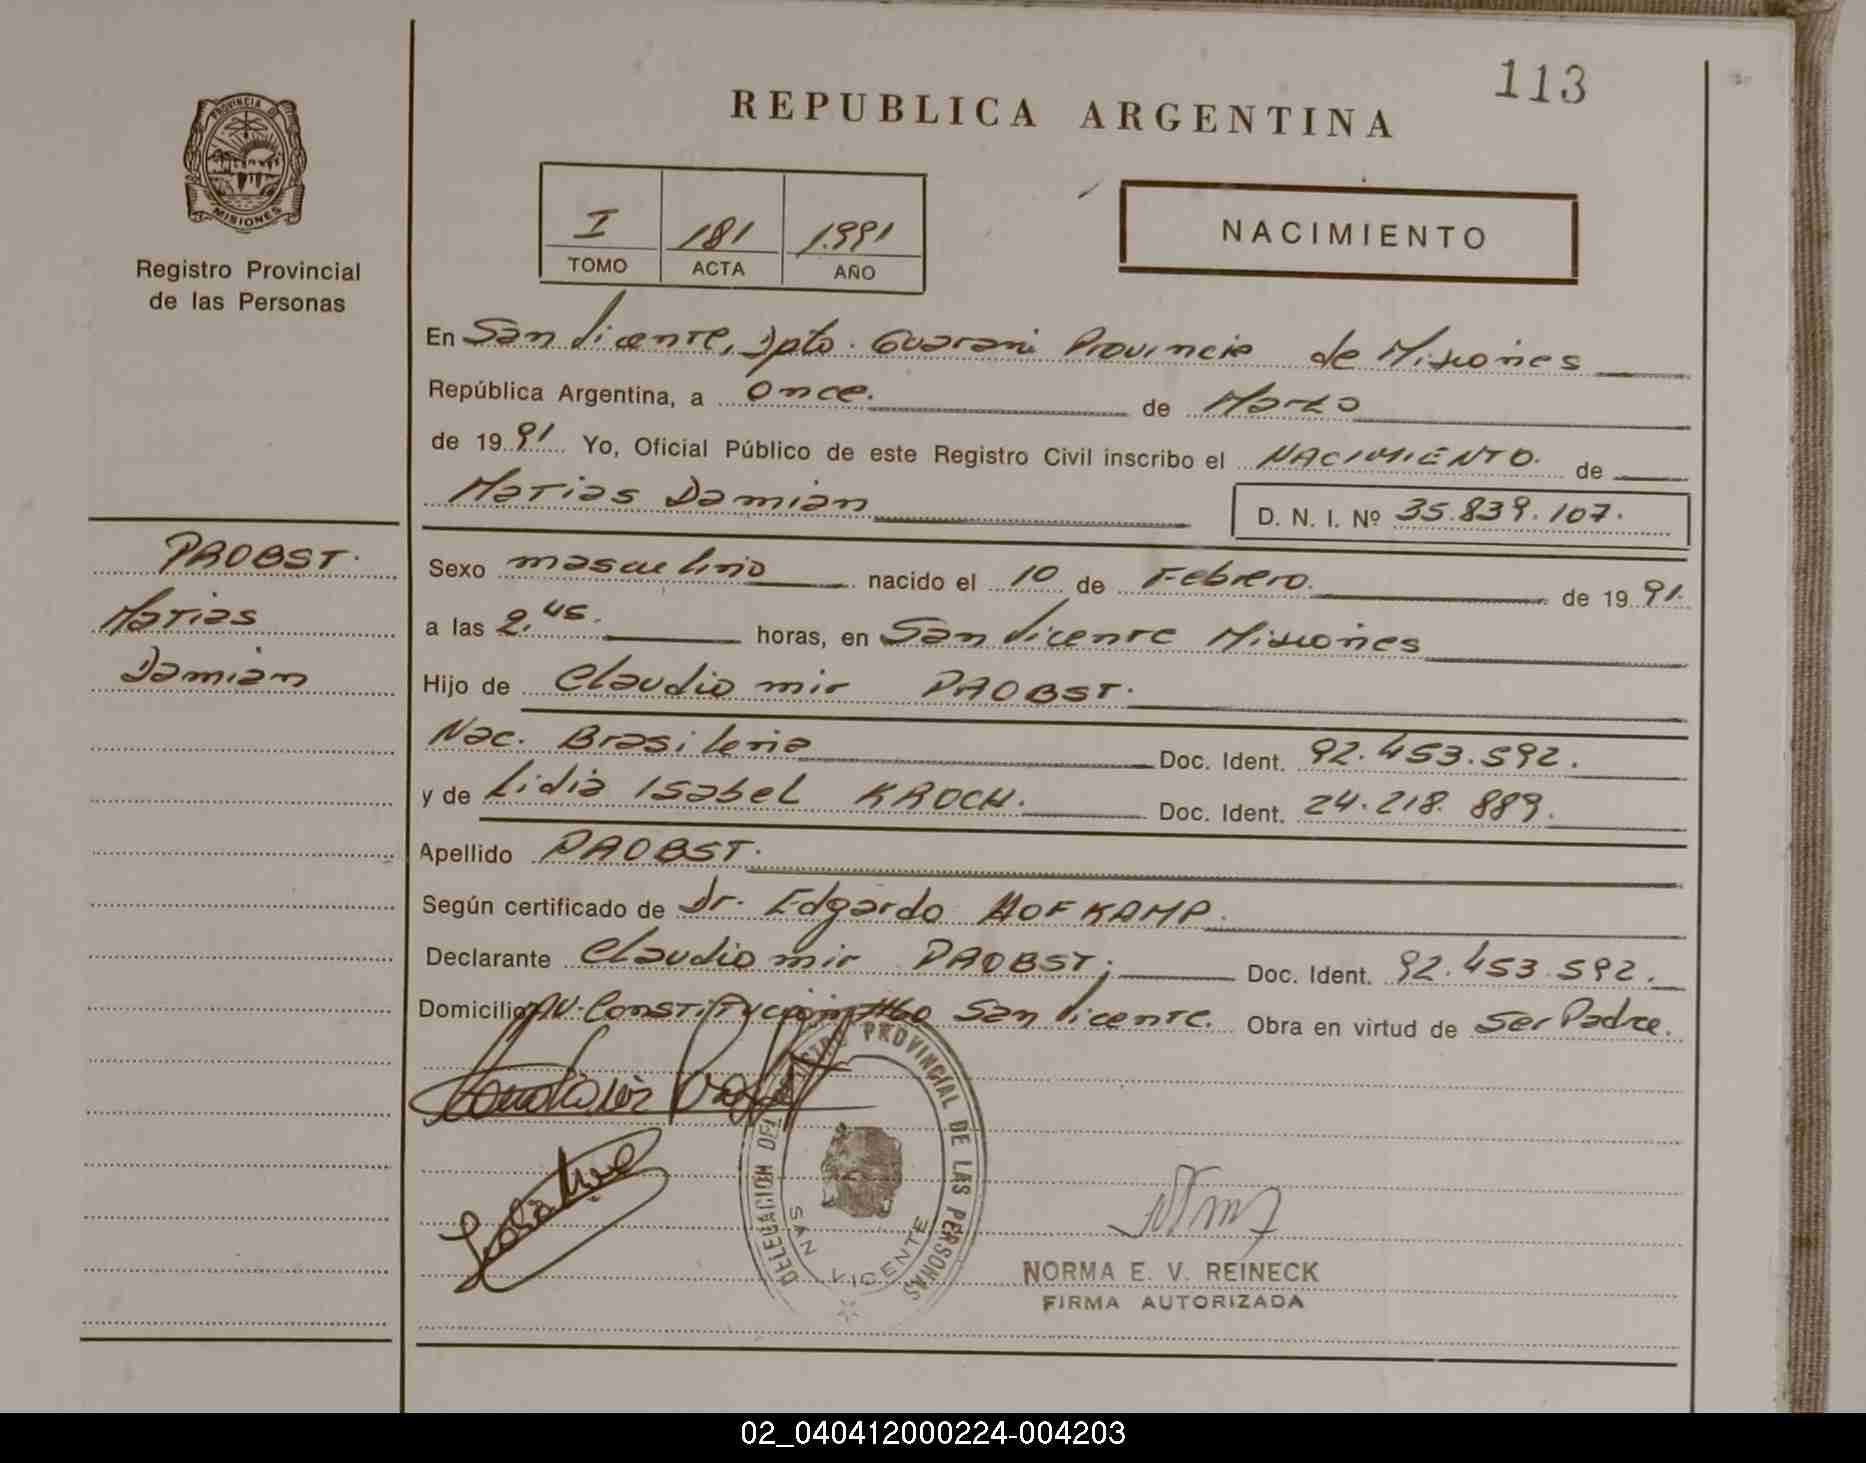 113
REPUBLICA ARGENTINA
PROVINCIA D
MISIONES
Registro Provincial
de las Personas
I 181 1.991
TOMO ACTA AÑO
NACIMIENTO
En San Vicente, Dpto. Guarani Provincia de Misiones
República Argentina, a once. de Marzo
de 1991 Yo, Oficial Público de este Registro Civil inscribo el NACIMIENTO. de
Matias Damian
D. N. I. Nº 35.839.107.
PROBST.
Matias
Damian
Sexo masculino nacido el 10 de Febrero. de 1991.
a las 2,45. horas, en San Vicente Misiones
Hijo de Claudio mir PROBST.
Nac. Brasileria Doc. Ident. 92.453.592.
y de Lidia Isabel KROCH. Doc. Ident. 24.218.889.
Apellido PROBST.
Según certificado de Dr. Edgardo HOFKAMP.
Declarante Claudio mir PROBST; Doc. Ident. 92.453.592.
Domicilio AV. Constitucion #60 San Vicente. Obra en virtud de Ser Padre.
DELEGACION DEL REGISTRO PROVINCIAL DE LAS PERSONAS
SAN VICENTE
NORMA E. V. REINECK
FIRMA AUTORIZADA
02_040412000224-004203